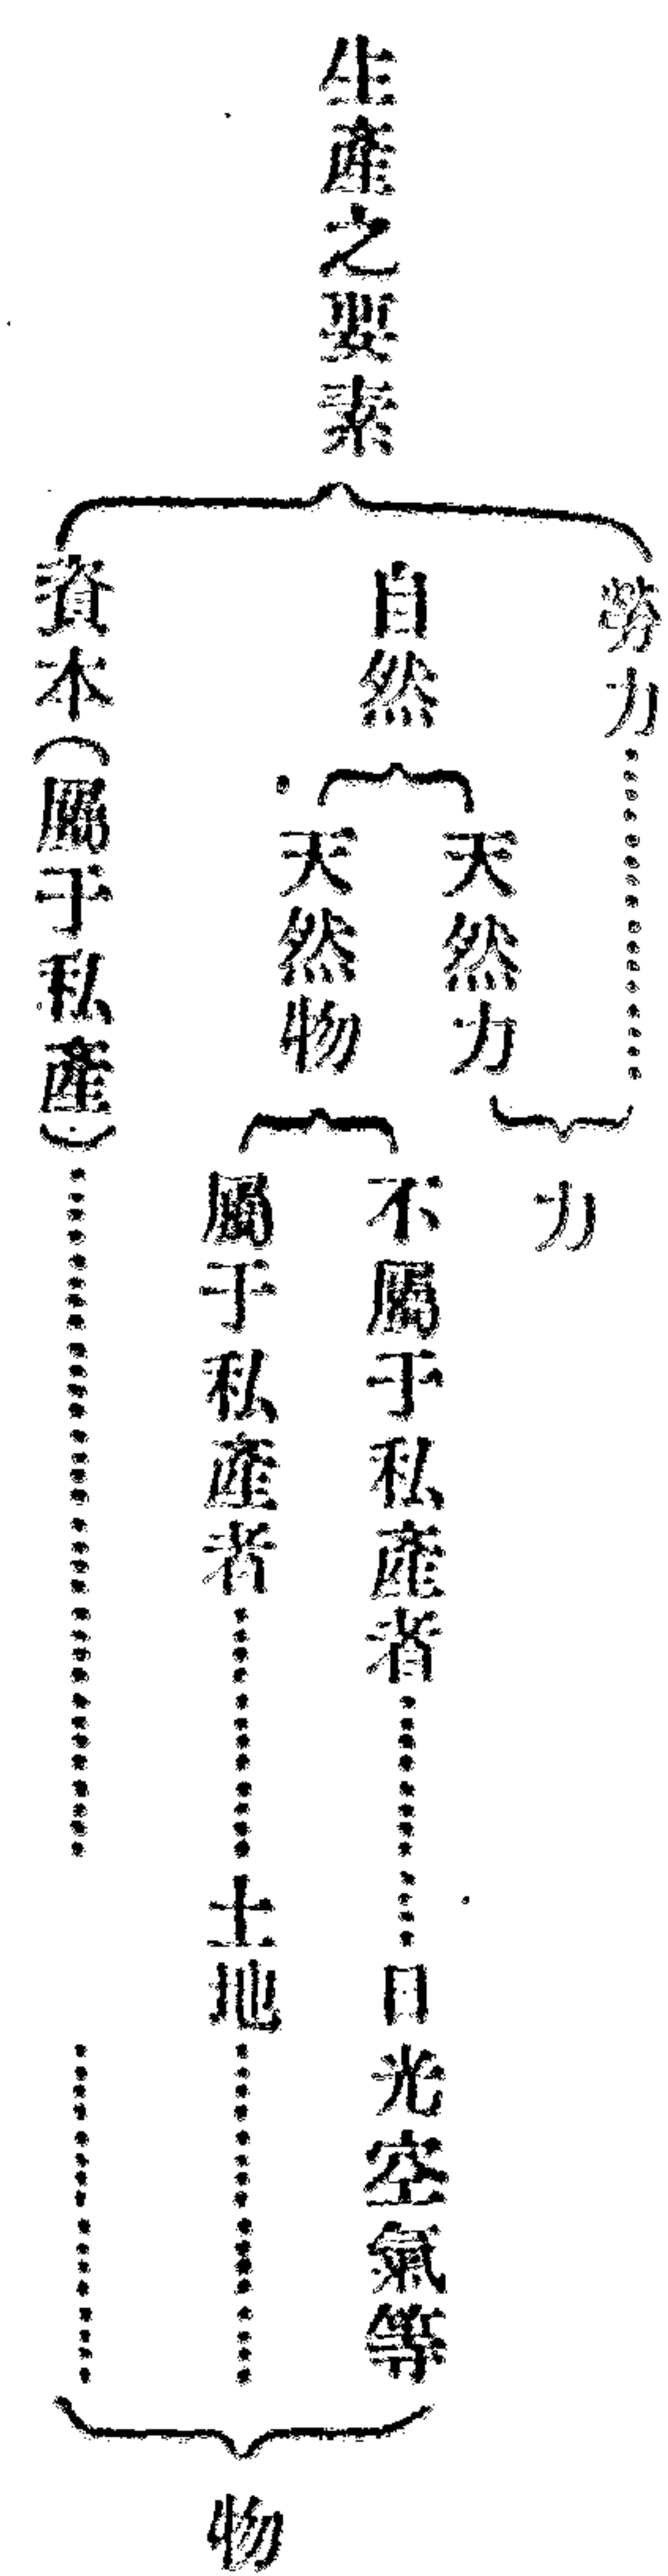 生產之要素
勞力
自然
天然力
天然物
力
不屬于私產者…………日光空氣等
屬于私產者…………土地
資本(屬于私產)
物